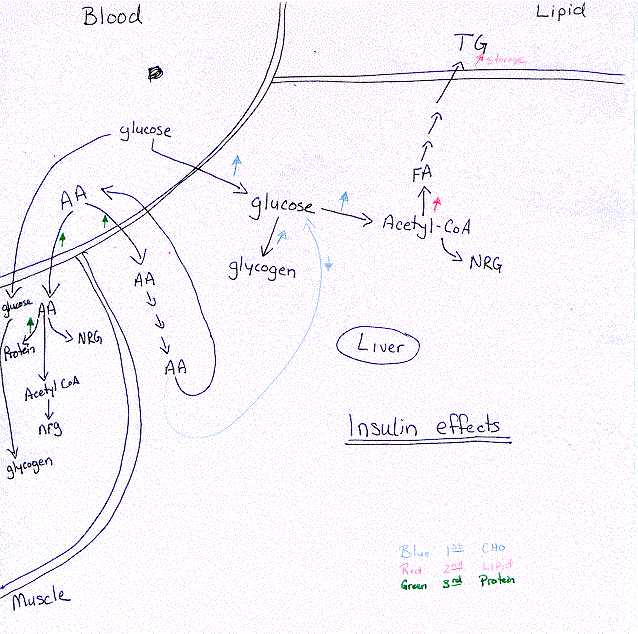 Blood
Lipid
TG
storage
glucose
FA
AA
glucose
Acetyl-CoA
NRG
glycogen
AA
glucose
AA
Protein
NRG
AA
Acetyl CoA
nrg
glycogen
Liver
Insulin effects
Blue 1st CHO
Red 2nd Lipid
Green 3rd Protein
Muscle